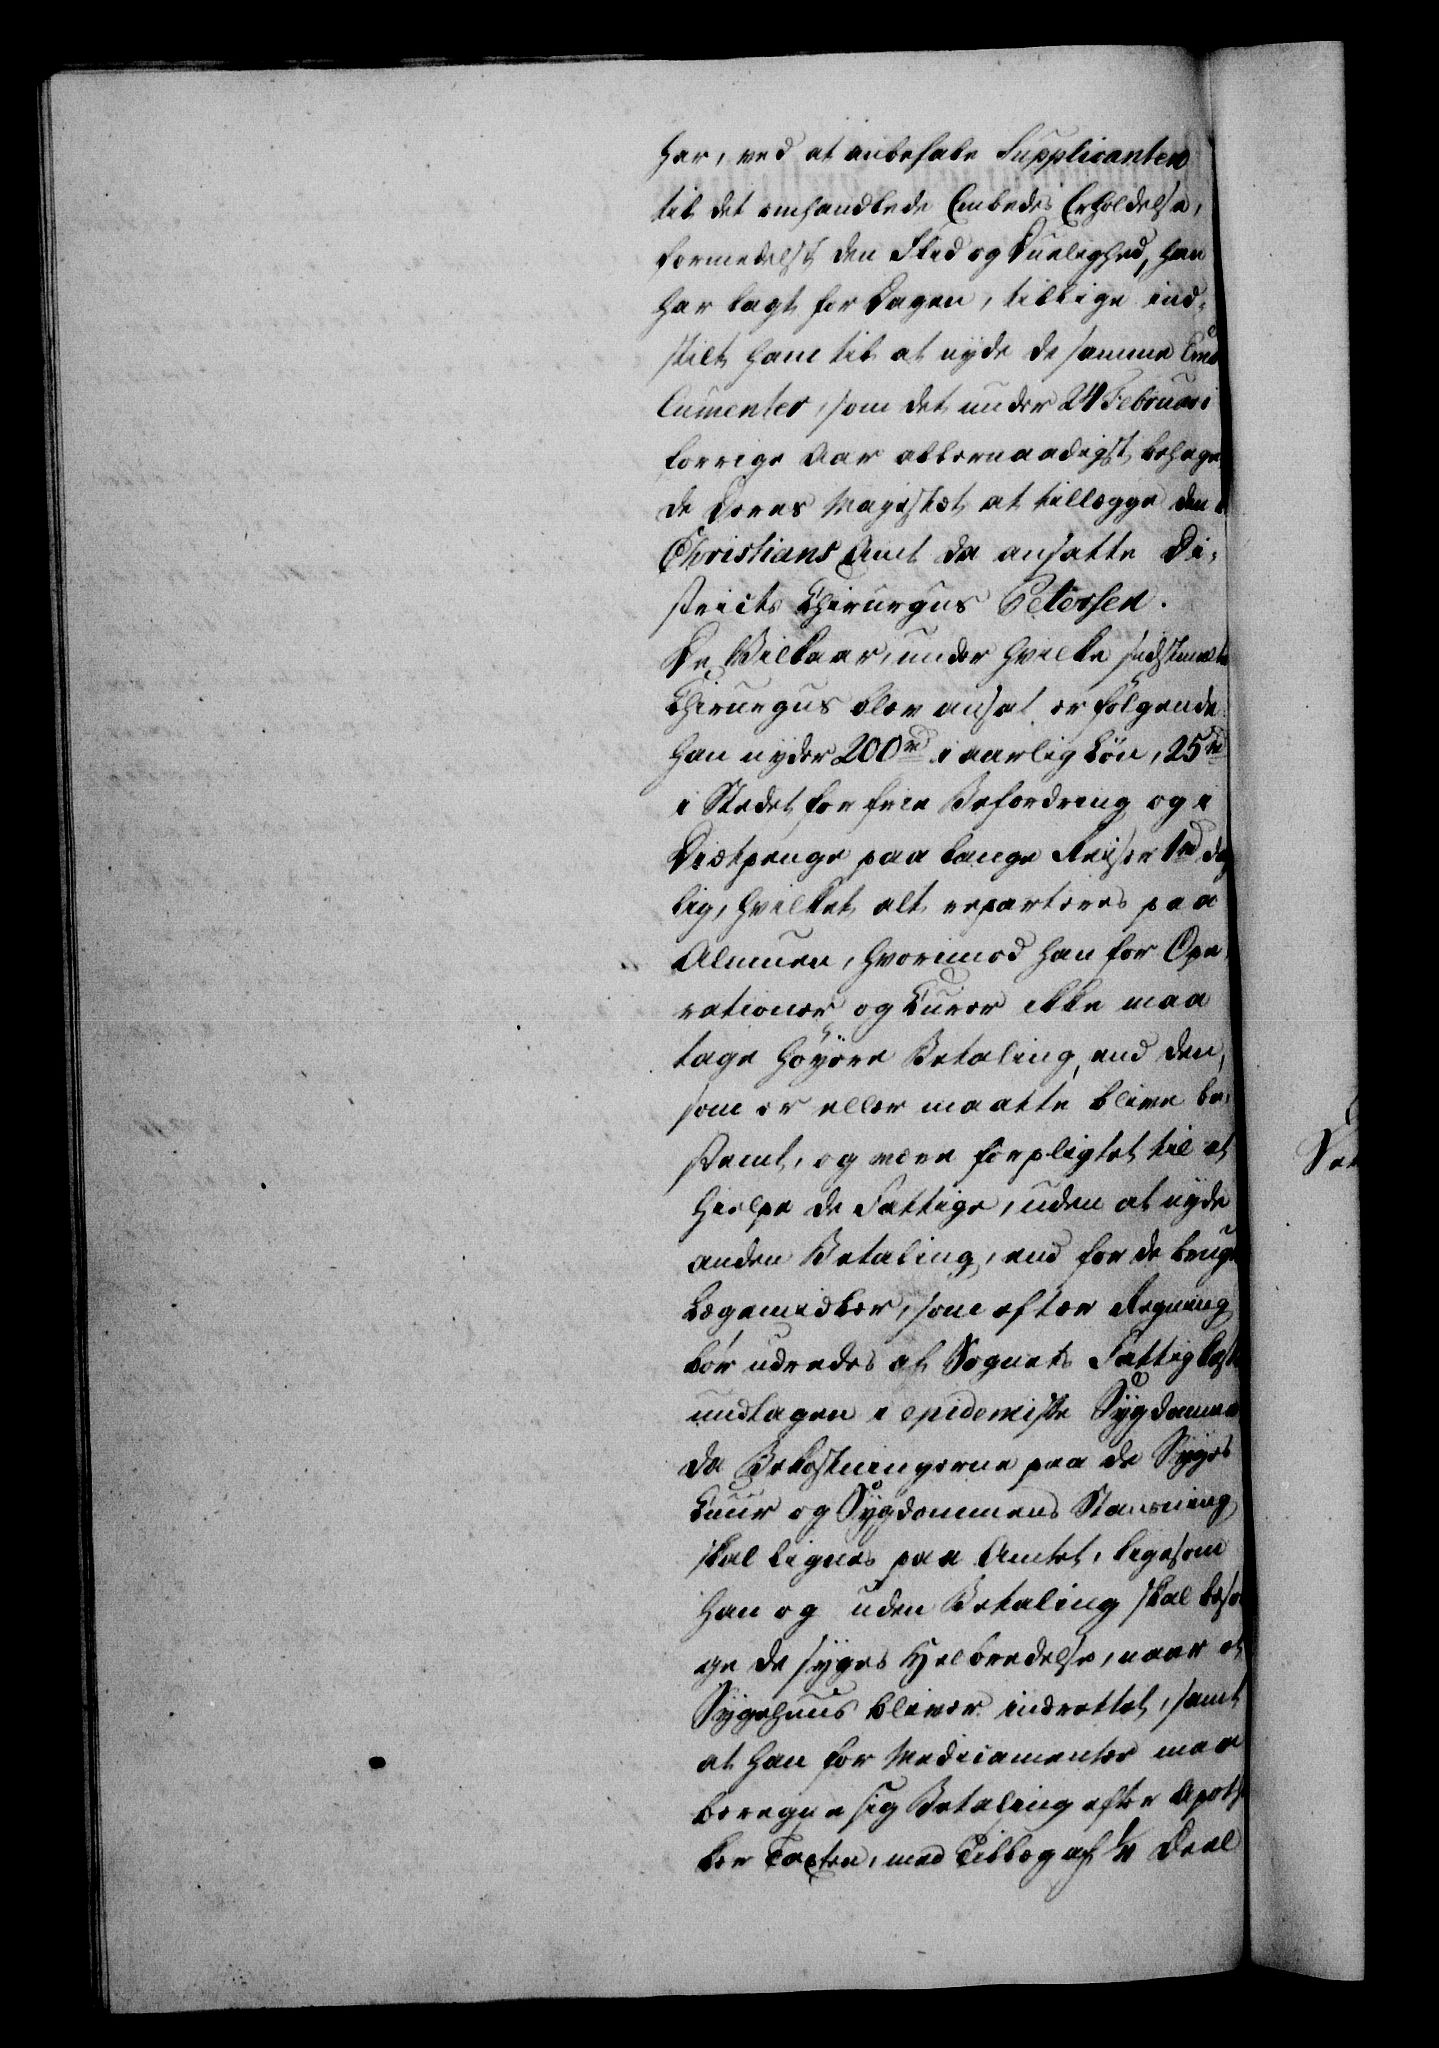 har, ved at anbefale Supplicanten
til det omhandlede Embedes Erholdelse,
formedelst den Flid og Duelighed, han
har lagt for Dagen, tillige ind-
stilt ham til at nyde de samme Emo
lumenter, som det under 24 Februari
forrige Aar allernaadigst behage
de Deres Majestæt at tillægge den i
Christians Amt da ansatte Di-
stricts Chirurgus Petersen.
De Vilkaar, under hvilke sidstmeldte
Chirurgus blev ansat er følgende:
han nyder 200 rd i aarlig Løn, 25 rd
i Stedet for frie Befordring og i
Diætpenge paa lange Reiser 1 rd dag
lig, hvilket alt reparteres paa
Almuen, hvorimod han for Ope
rationer og Kurer ikke maa
tage høyere Betaling, end den,
som er eller maatte blive be-
stemt, og være forpligtet til at
hielpe de Fattige, uden at nyde
anden Betaling, end for de brugte
Lægemidler, som efter Regning
bør udredes af Sognets Fattigkasse
undtagen i epidemiske Sygdomme
da Bekostningerne paa de Syges
Kuur og Sygdommens Standsning
skal lignes paa Amtet, ligesom
han og uden Betaling skal besør
ge de syges Helbredelse, naar et
Sygehuus bliver indrettet, samt
at han for Medicamenter maa
beregne sig Betaling efter Apothe
ker Taxten, med Tillæg af 1/4 Deel